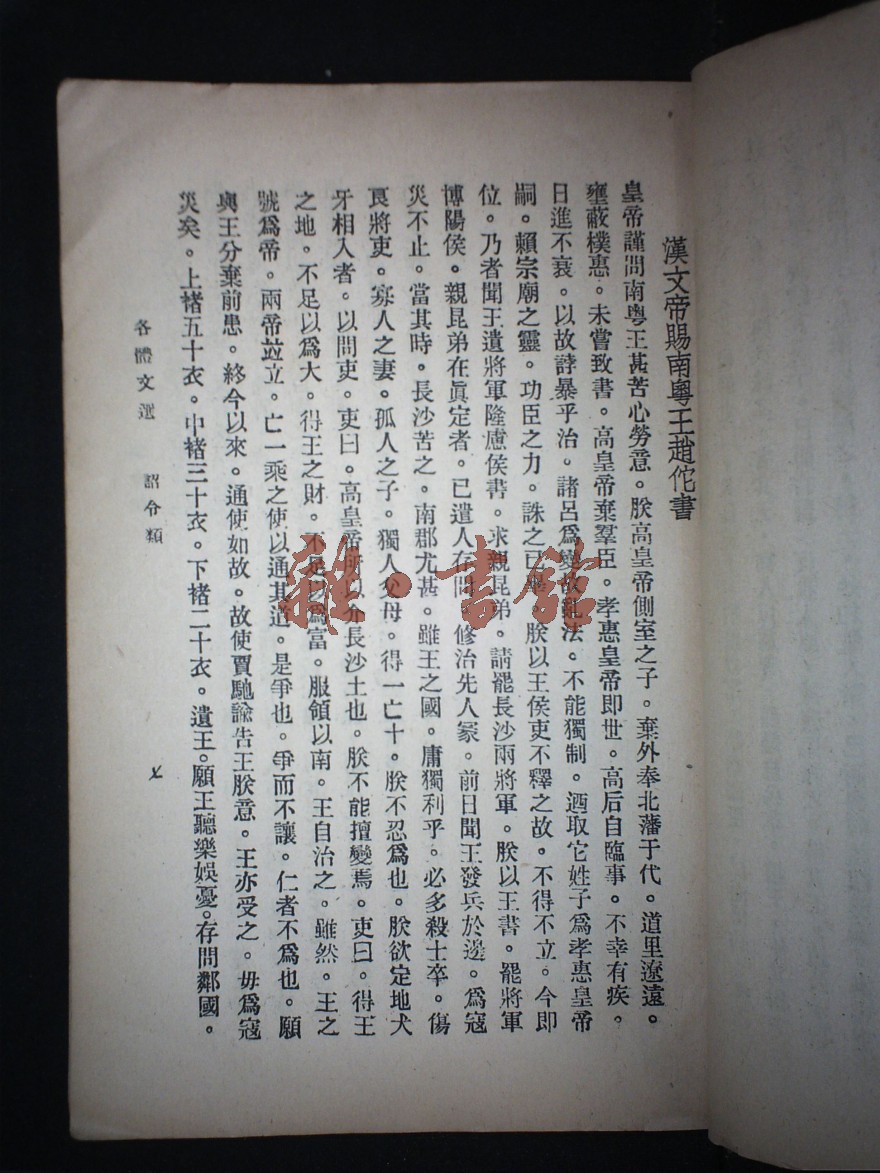 漢文帝賜南粤王趙佗書
皇帝謹問南粤王甚苦心勞意。朕高皇帝側室之子。棄外奉北藩于代。道里遼遠。
壅蔽樸愚。未嘗致書。高皇帝棄羣臣。孝惠皇帝即世。高后自臨事。不幸有疾。
日進不衰。以故誖暴乎治。諸呂爲變故亂法。不能獨制。迺取它姓子爲孝惠皇帝
嗣。賴宗廟之靈。功臣之力。誅之已畢。朕以王侯吏不釋之故。不得不立。今即
位。乃者聞王遺將軍隆慮侯書。求親昆弟。請罷長沙兩將軍。朕以王書。罷將軍
博陽侯。親昆弟在眞定者。已遣人存問。修治先人冢。前日聞王發兵於邊。爲寇
災不止。當其時。長沙苦之。南郡尤甚。雖王之國。庸獨利乎。必多殺士卒。傷
良將吏。寡人之妻。孤人之子。獨人父母。得一亡十。朕不忍爲也。朕欲定地犬
牙相入者。以問吏。吏曰。高皇帝所以介長沙土也。朕不能擅變焉。吏曰。得王
之地。不足以爲大。得王之財。不足以爲富。服領以南。王自治之。雖然。王之
號爲帝。兩帝竝立。亡一乘之使以通其道。是爭也。爭而不讓。仁者不爲也。願
與王分棄前患。終今以來。通使如故。故使賈馳諭告王朕意。王亦受之。毋爲寇
災矣。上褚五十衣。中褚三十衣。下褚二十衣。遺王。願王聽樂娛憂。存問鄰國。
各體文選 詔令類
雜·書館